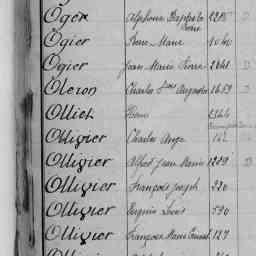 Oger Alphonse Baptiste Pierre
Ogier Pierre Marie 1040
Ogier Jean Marie Pierre 2641 D
Oleron Charles Auguste 1459 D
Ollier Pierre 1344
Ollivier Charles Ange 142
Ollivier Albert Jean Marie 1289 D
Ollivier François Joseph 320
Ollivier Eugène Louis 590
Ollivier François Marie 127
Ollivier